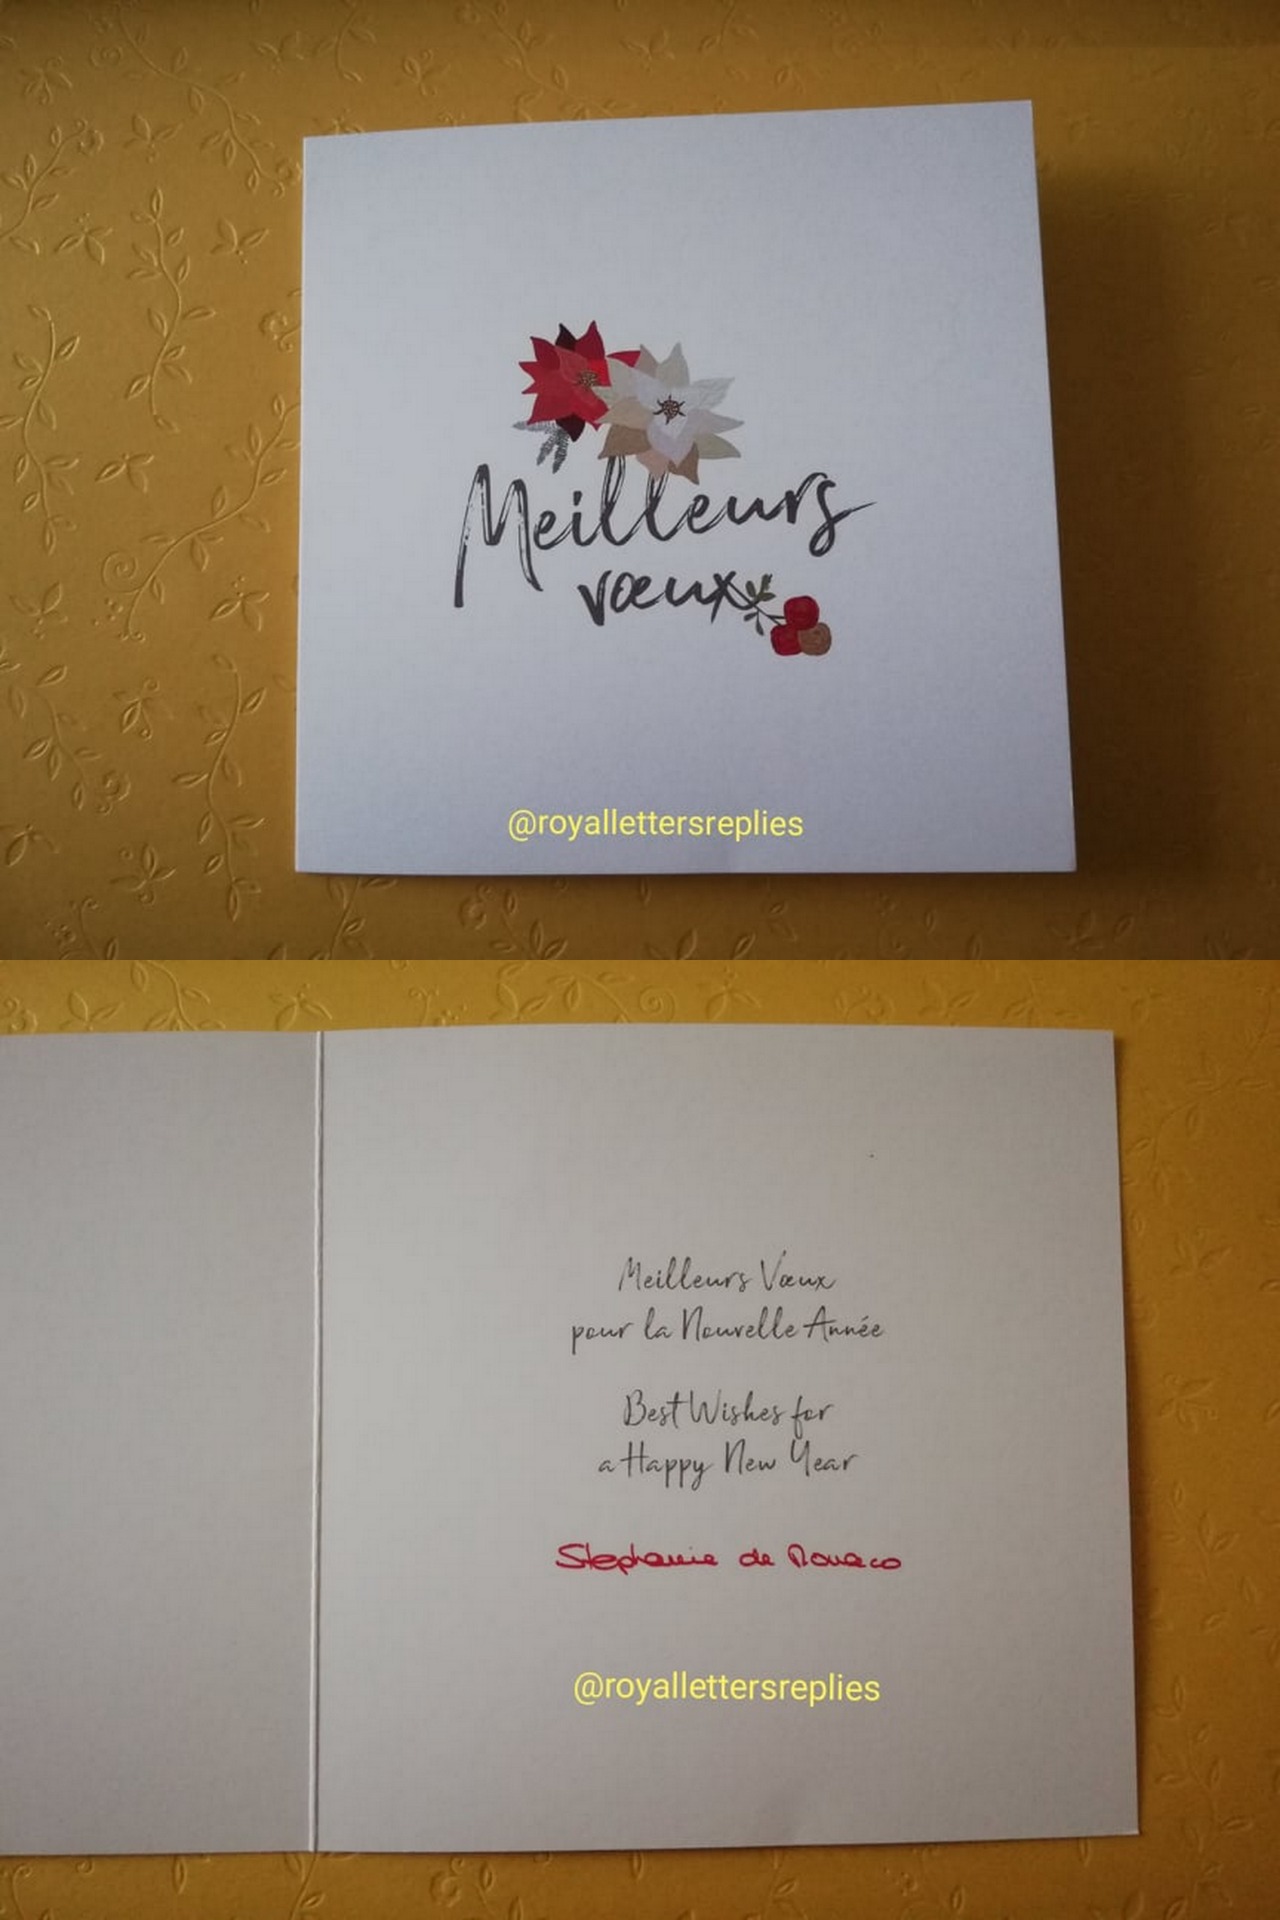 Meilleurs
vœux
@royallettersreplies
Meilleurs Vœux
pour la Nouvelle Année
Best Wishes for
a Happy New Year
Stephanie de Monaco
@royallettersreplies